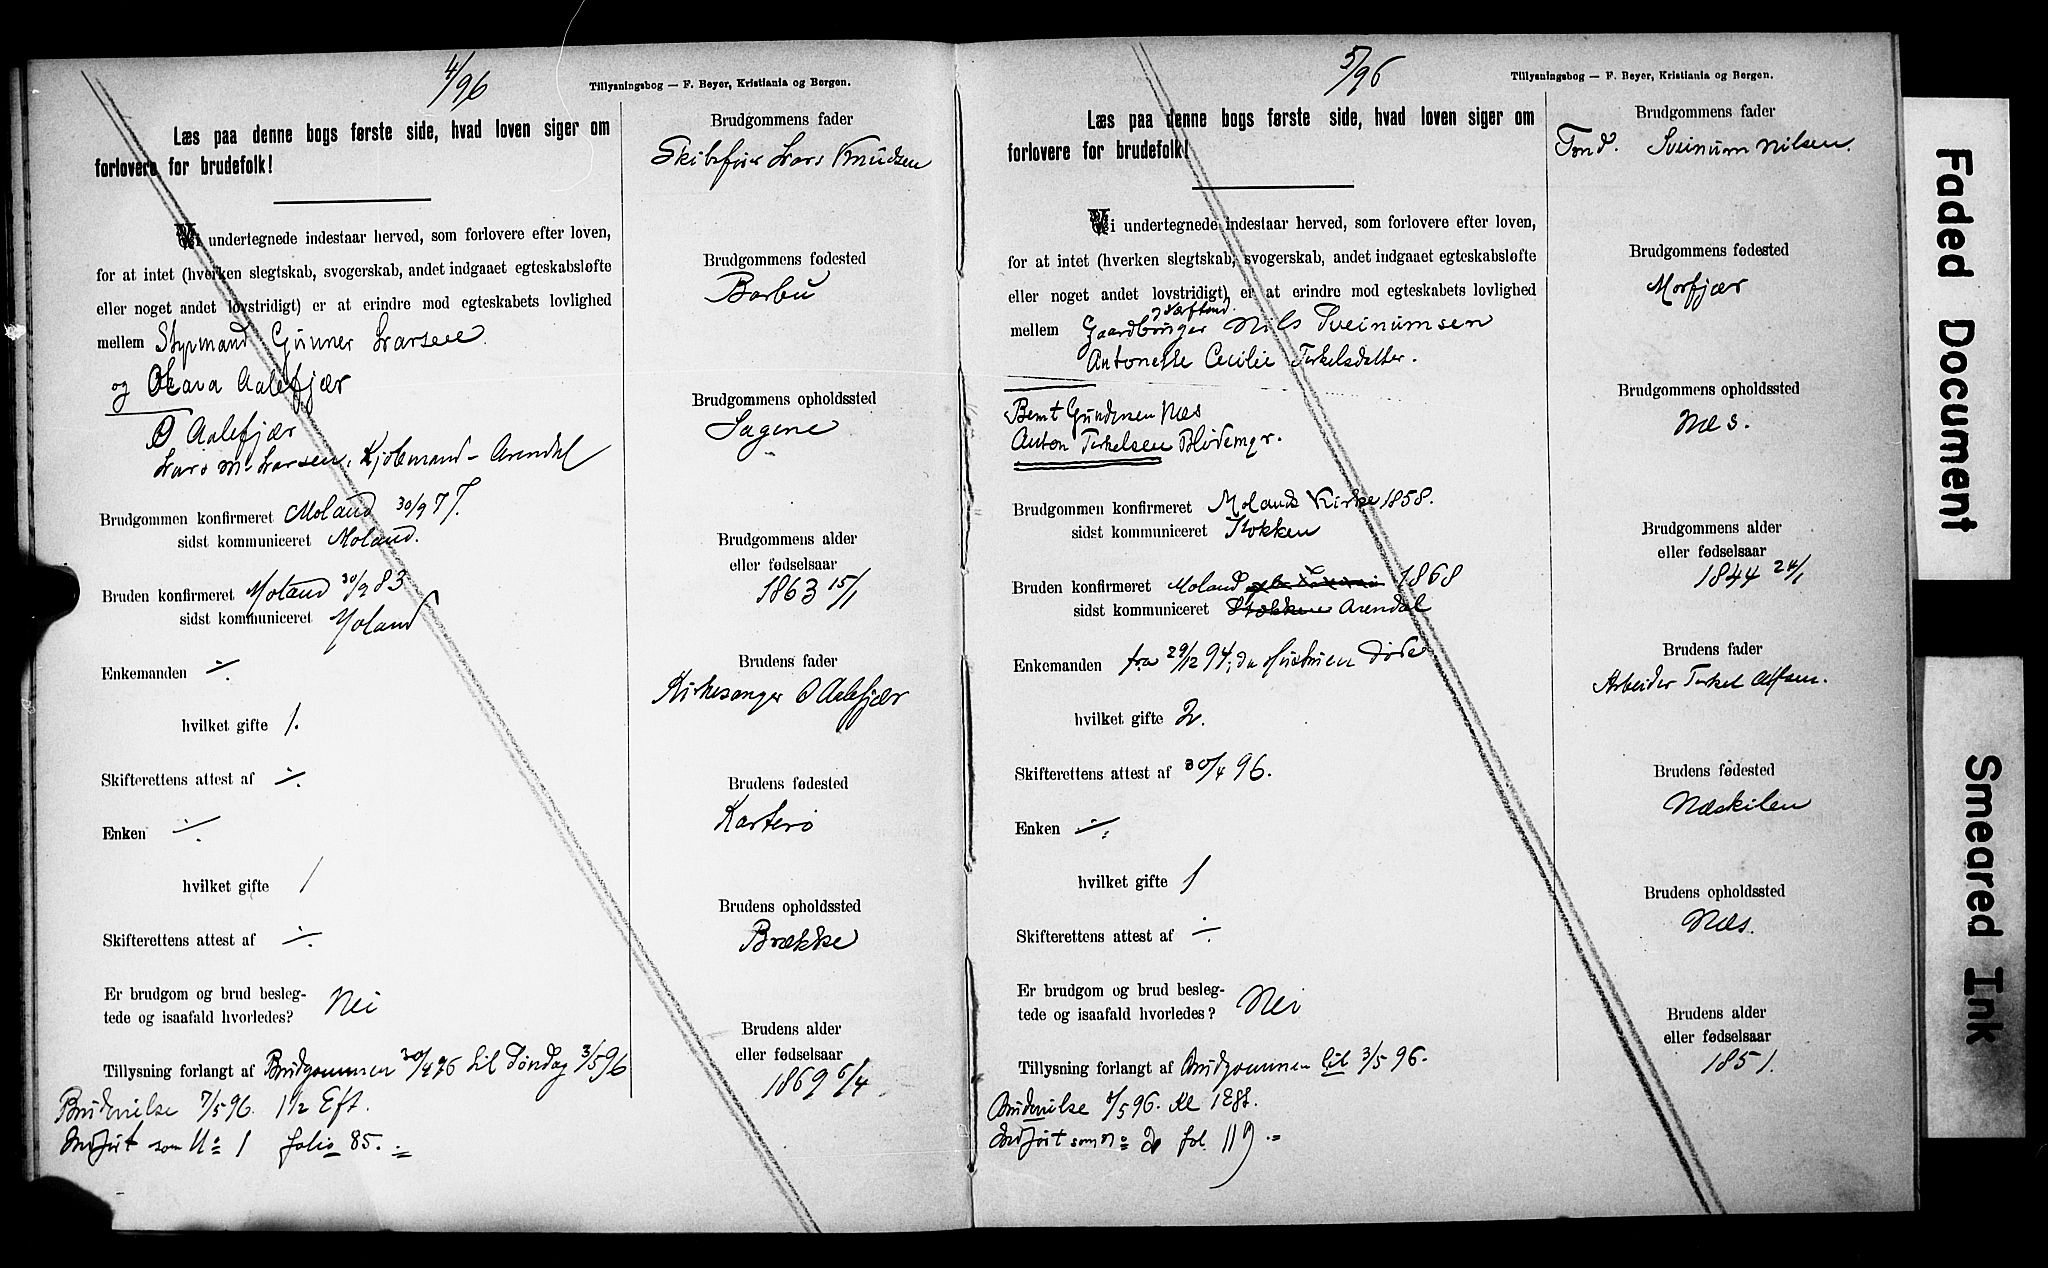 4/96
Tillysningsbog — F. Beyer, Kristiania og Bergen.
Læs paa denne bogs første side, hvad loven siger om
forlovere for brudefolk!
Vi undertegnede indestaar herved, som forlovere efter loven,
for at intet (hverken slegtskab, svogerskab, andet indgaaet egteskabsløfte
eller noget andet lovstridigt) er at erindre mod egteskabets lovlighed
mellem Styrmand Gunner Larsen
og Olava Aalefjær
O Aalefjær
Lars M. Larsen, Kjøbmand - Arendal
Brudgommen konfirmeret Moland 30/9 77.
sidst kommuniceret Moland.
Bruden konfirmeret Moland 30/9 83
sidst kommuniceret Moland
Enkemanden ./.
hvilket gifte 1.
Skifterettens attest af ./.
Enken ./.
hvilket gifte 1
Skifterettens attest af ./.
Er brudgom og brud besleg-
tede og isaafald hvorledes? Nei
Tillysning forlangt af Brudgommen 30/4 96 til Søndag 3/5 96
Brudevielse 7/5 96. 1 1/2 Eft.
Indført som No 1 folio 85.
Brudgommens fader
Skibsfører Lars Knudsen
Brudgommens fødested
Barbu
Brudgommens opholdssted
Sagene
Brudgommens alder
eller fødselsaar
1863 15/1
Brudens fader
Kirkesanger O Aalefjær
Brudens fødested
Karterø
Brudens opholdssted
Brække
Brudens alder
eller fødselsaar
1869 6/4
5/96
Tillysningsbog — F. Beyer, Kristiania og Bergen.
Læs paa denne bogs første side, hvad loven siger om
forlovere for brudefolk!
Vi undertegnede indestaar herved, som forlovere efter loven,
for at intet (hverken slegtskab, svogerskab, andet indgaaet egteskabsløfte
eller noget andet lovstridigt) er at erindre mod egteskabets lovlighed
mellem Gaardbruger Nils Sveinumsen
Antonette Cecilie Terkelsdatter.
Bernt Gundersen Næs
Anton Terkelsen
Brudgommen konfirmeret Molands Kirke 1858.
sidst kommuniceret Stokken
Bruden konfirmeret Moland 1868
sidst kommuniceret Stokken Arendal
Enkemanden fra 29/12 94, da Hustruen døde
hvilket gifte 2.
Skifterettens attest af 30/4 96.
Enken ./.
hvilket gifte 1
Skifterettens attest af ./.
Er brudgom og brud besleg-
tede og isaafald hvorledes? Nei
Tillysning forlangt af Brudgommen til 3/5 96.
Brudevielse /5 96. Kl
Indført som No 2 fol. 119
Brudgommens fader
Sveinum Nilsen.
Brudgommens fødested
Morfjær
Brudgommens opholdssted
Næs.
Brudgommens alder
eller fødselsaar
1844 24/1
Brudens fader
Arbeider Terkel Alfsen.
Brudens fødested
Næskilen
Brudens opholdssted
Næs.
Brudens alder
eller fødselsaar
1851.
Faded Document
Smeared Ink